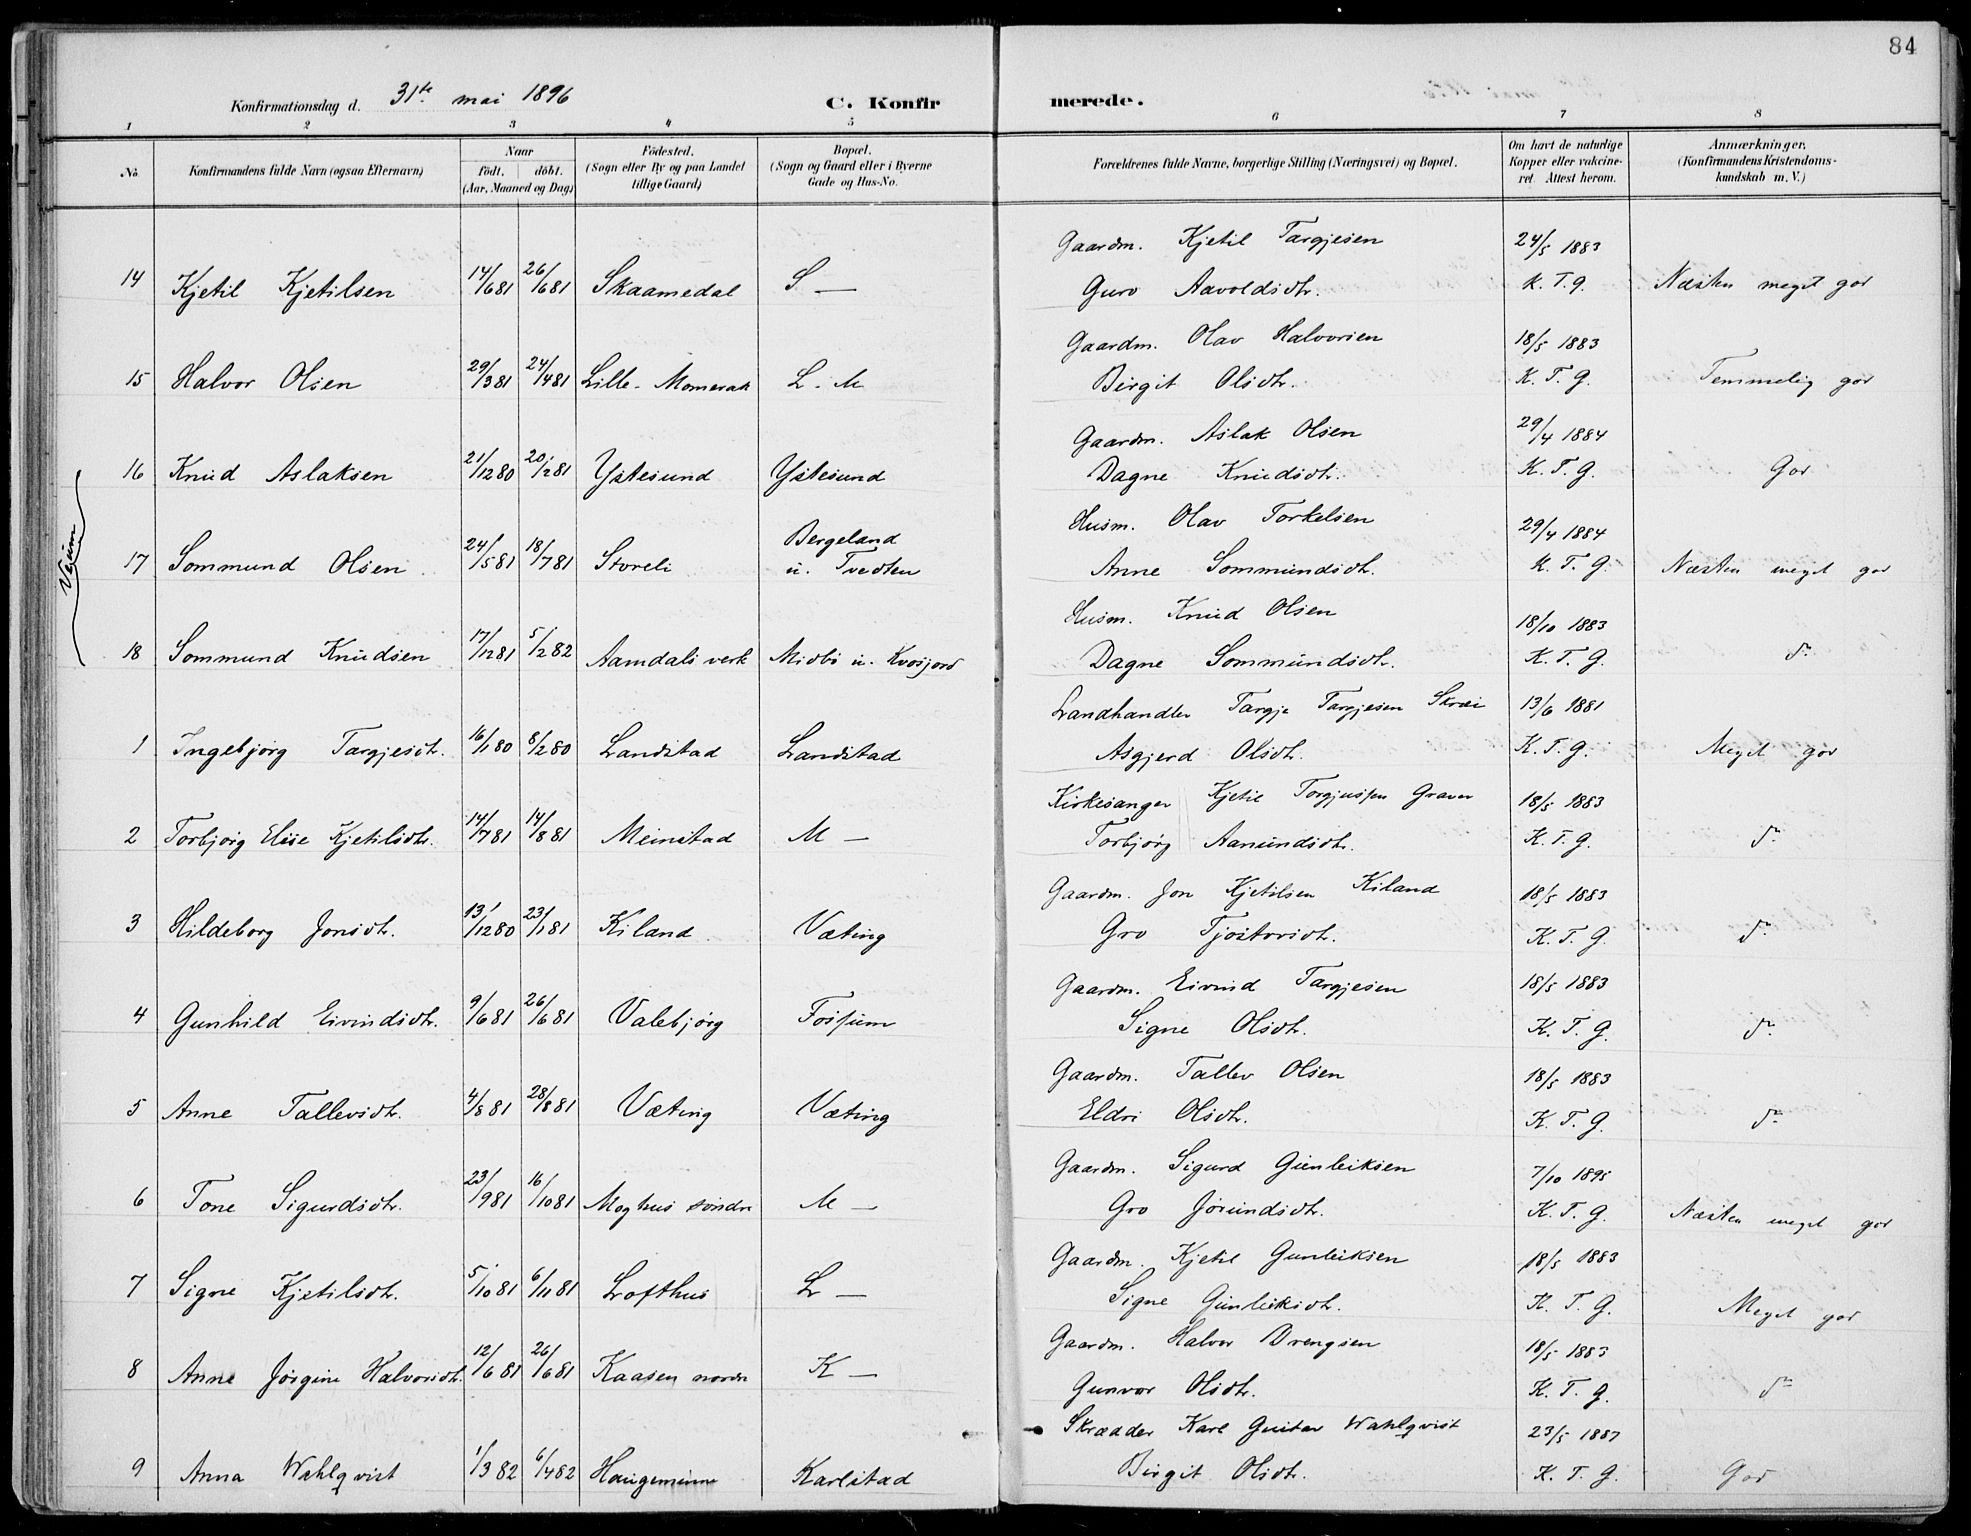 84
Konfirmationsdag d. 31te mai 1896 C. Konfirmerede.
1 2 3 4 5 6 7 8
No. Konfirmandens fulde Navn (ogsaa Efternavn) Naar født. døbt. (Aar, Maaned og Dag) Fødested. (Sogn eller By og paa Landet tillige Gaard) Bopæl. (Sogn og Gaard eller i Byerne Gade og Hus-No. Forældrenes fulde Navne, borgerlige Stilling (Næringsvei) og Bopæl. Om havt de naturlige Kopper eller vakcineret. Attest herom. Anmærkninger. (Konfirmandens Kristendomskundskab m. V.)
Gaardm. Kjetil Targjesen 24/5 1883
14 Kjetil Kjetilsen 14/6 81 26/6 81 Skaamedal S — Guro Aavoldsdtr. K. T. G. Næsten meget god
Gaardm. Olav Halvorsen 18/5 1883
15 Halvor Olsen 29/3 81 24/4 81 Lille-Momerak L. M Birgit Olsdtr. K. T. G. Temmelig god
Gaardm. Aslak Olsen 29/4 1884
16 Knud Aslaksen 21/12 80 20/2 81 Ystesund Ystesund Dagne Knudsdtr. K. T. G. God
Veum
Husm. Olav Torkelsen 29/4 1884
17 Sommund Olsen 24/5 81 18/7 81 Storeli Bergeland u. Tvedten Anne Sommundsdtr. K. T. G. Næsten meget god
Husm. Knud Olsen 18/10 1883
18 Sommund Knudsen 17/12 81 5/2 82 Aamdals verk Midbø u. Kvosjord Dagne Sommundsdtr. K. T. G. do
Landhandler Targje Targjesen Skrei 13/6 1881
1 Ingebjørg Targjesdtr. 16/1 80 8/2 80 Landstad Landstad Asgjerd Olsdtr. K. T. G. Meget god
Kirkesanger Kjetil Torgjussen Graver 18/5 1883
2 Torbjørg Elise Kjetilsdtr. 14/7 81 14/8 81 Meinstad M — Torbjørg Aanundsdtr. K. T. G. do
Gaardm. Jon Kjetilsen Kiland 18/5 1883
3 Hildeborg Jonsdtr. 13/12 80 23/1 81 Kiland Væting Gro Tjostovsdtr. K. T. G. do
Gaardm. Eivind Targjesen 18/5 1883
4 Gunhild Eivindsdtr. 9/6 81 26/6 81 Valebjørg Fossum Signe Olsdtr. K. T. G. do
Gaardm. Tallev Olsen 18/5 1883
5 Anne Tallevsdtr. 4/8 81 28/8 81 Væting Væting Eldri Olsdtr. K. T. G. do
Gaardm. Sigurd Gunleiksen 7/10 1895
6 Tone Sigurdsdtr. 23/9 81 16/10 81 Moghus søndre M — Gro Jørundsdtr. K. T. G. Næsten meget god
Gaardm. Kjetil Gunleiksen 18/5 1883
7 Signe Kjetilsdtr. 5/10 81 6/11 81 Lofthus L — Signe Gunleiksdtr. K. T. G. Meget god
Gaardm. Halvor Drengsen 18/5 1883
8 Anne Jørgine Halvorsdtr. 12/6 81 26/6 81 Kaasen nordre K — Gunvor Olsdtr. K. T. G. do
Skrædder Karl Gustav Wahlqvist 23/5 1887
9 Anna Wahlqvist 1/3 82 6/4 82 Haugeminne Karlstad Birgit Olsdtr. K. T. G. God